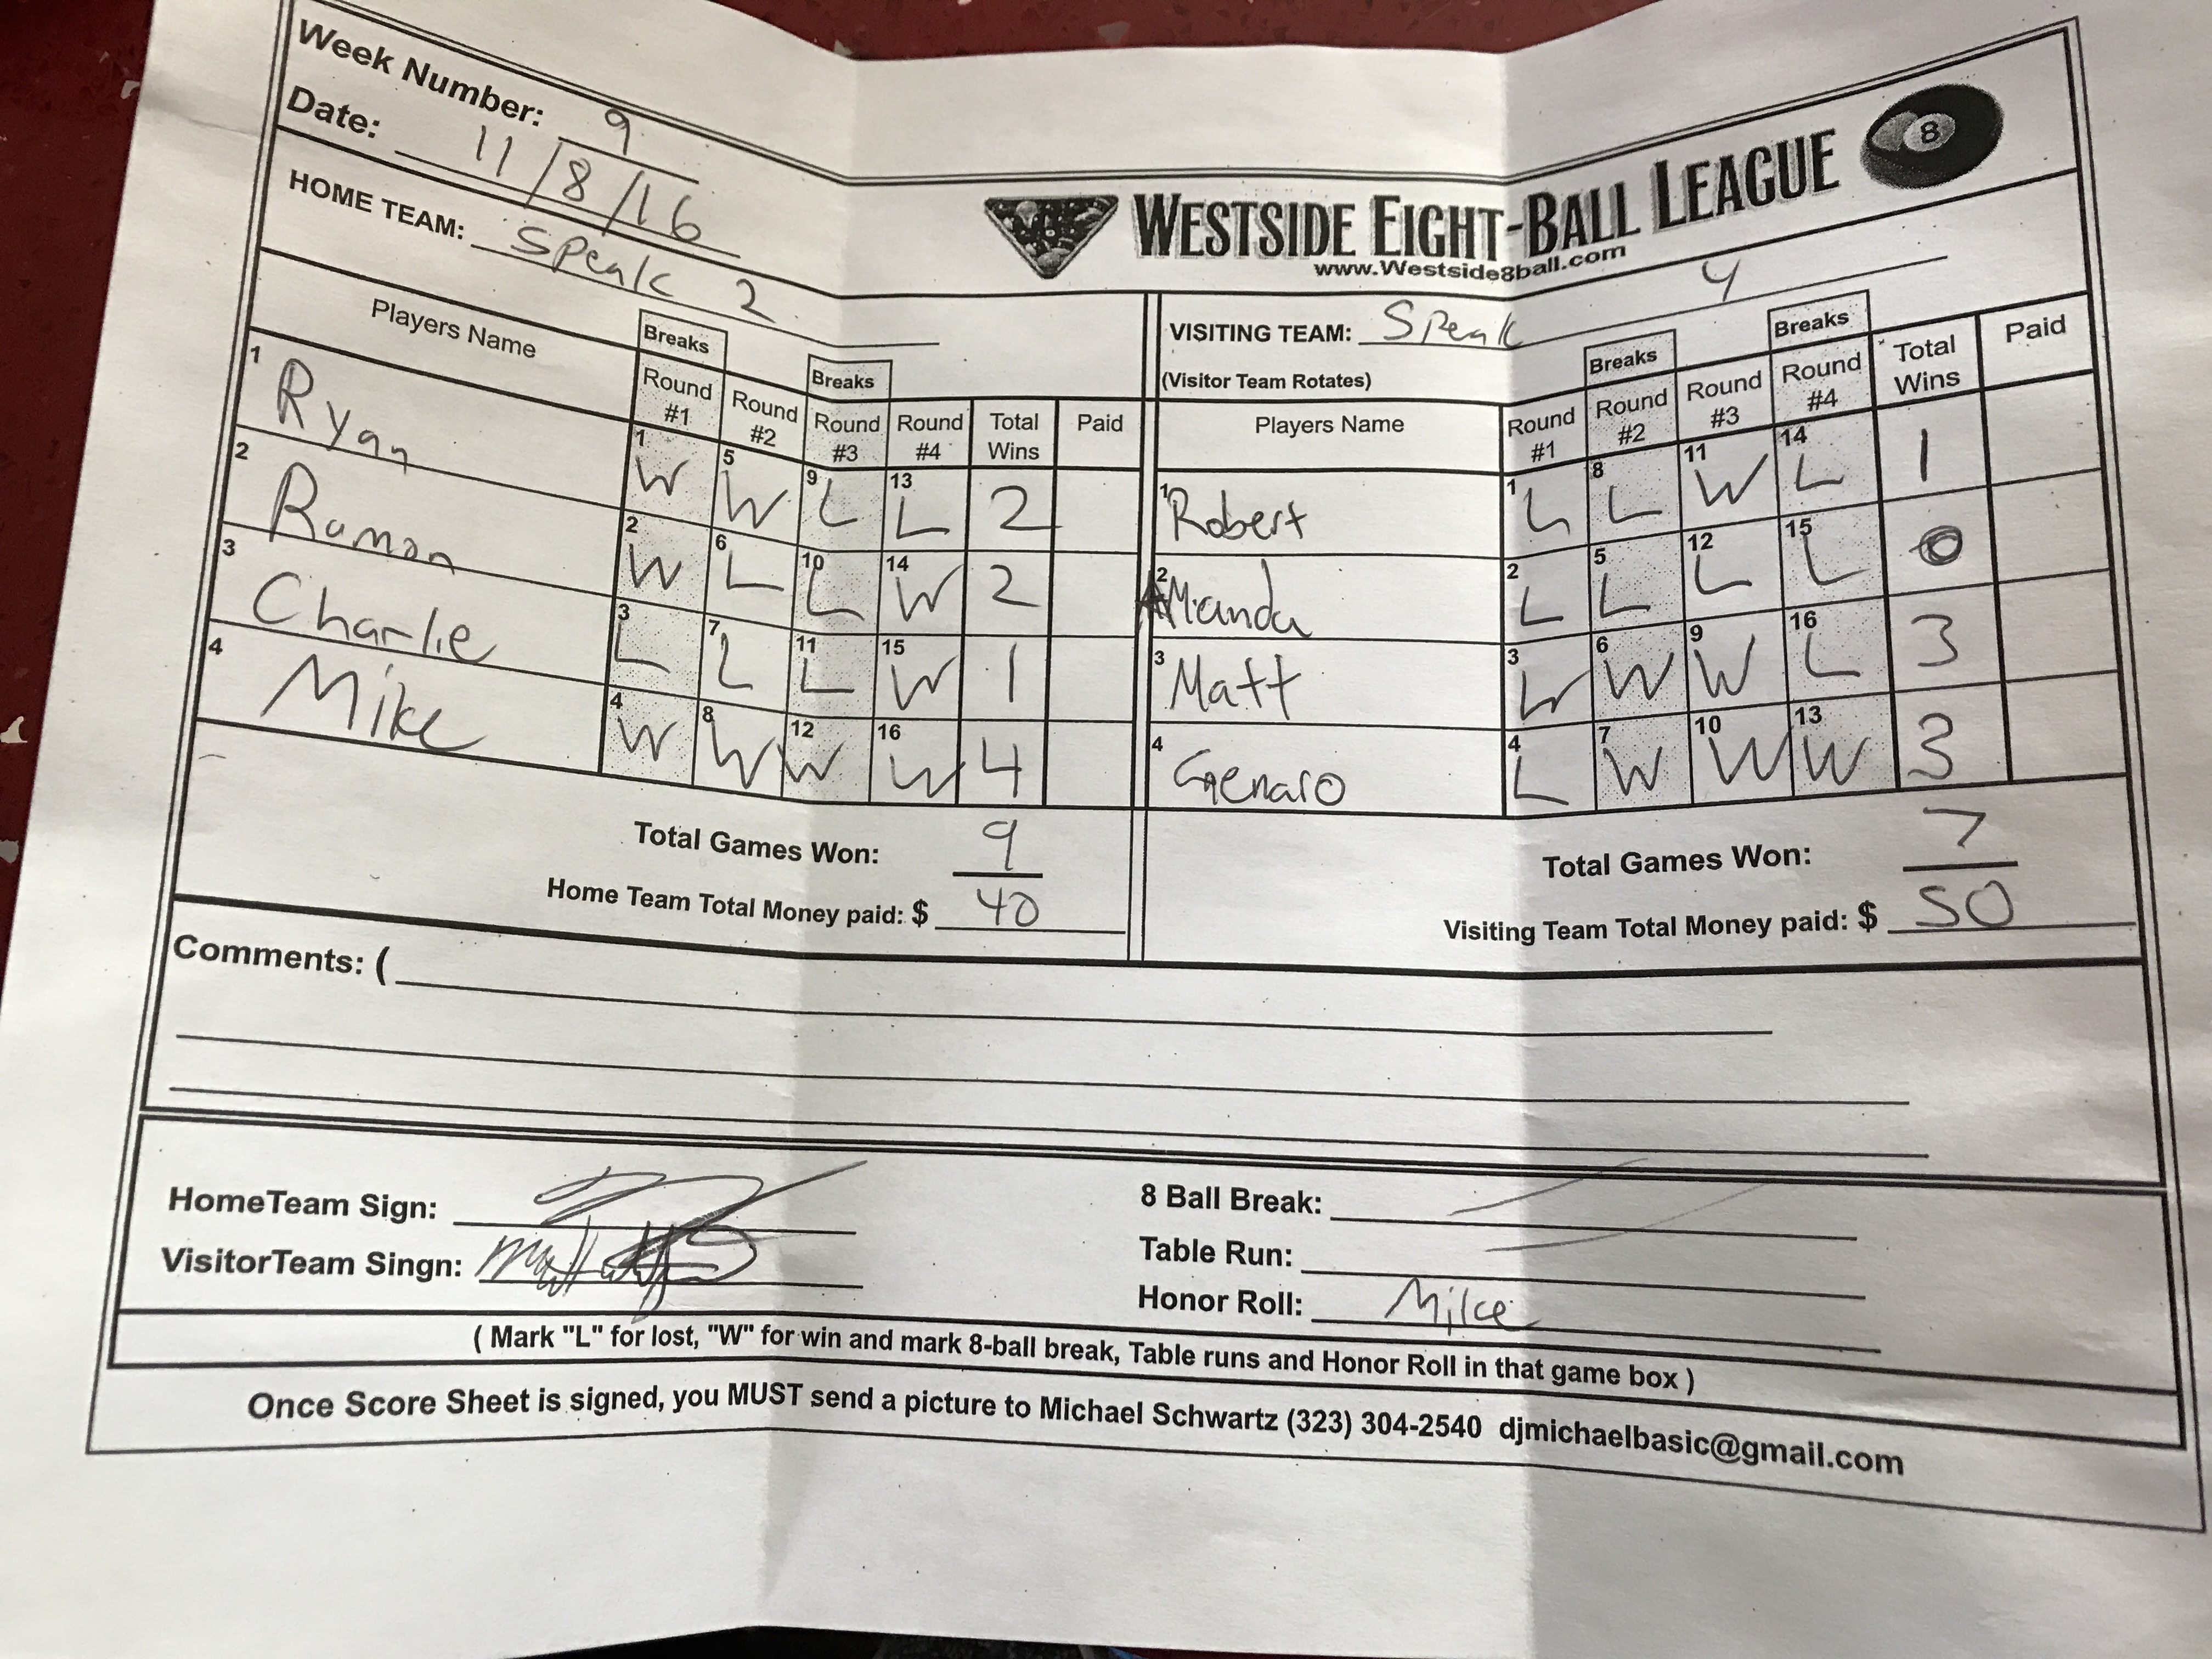 Week Number: 9
Date: 11/8/16
WESTSIDE EIGHT-BALL LEAGUE 8
www.Westside8ball.com
HOME TEAM: Speak 2
VISITING TEAM: Speak 4
(Visitor Team Rotates)
Players Name Breaks Round #1 Round #2 Breaks Round #3 Round #4 Total Wins Paid
1 Ryan 1 W 5 W 9 L 13 L 2
2 Ramon 2 W 6 L 10 L 14 W 2
3 Charlie 3 L 7 L 11 L 15 W 1
4 Mike 4 W 8 W 12 W 16 W 4
Total Games Won: 9
Home Team Total Money paid: $ 40
Players Name Round #1 Breaks Round #2 Round #3 Breaks Round #4 Total Wins Paid
1 Robert 1 L 8 L 11 W 14 L 1
2 AManda 2 L 5 L 12 L 15 L 0
3 Matt 3 W 6 W 9 W 16 L 3
4 Genaro 4 L 7 W 10 W 13 W 3
Total Games Won: 7
Visiting Team Total Money paid: $ 50
Comments: (
HomeTeam Sign:
VisitorTeam Singn:
8 Ball Break:
Table Run:
Honor Roll: Mike
( Mark "L" for lost, "W" for win and mark 8-ball break, Table runs and Honor Roll in that game box )
Once Score Sheet is signed, you MUST send a picture to Michael Schwartz (323) 304-2540 djmichaelbasic@gmail.com